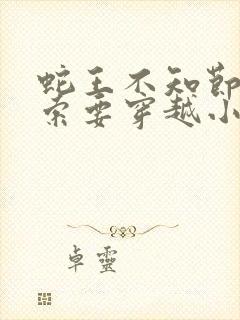 蛇王不知节
索要穿越小
卓灵